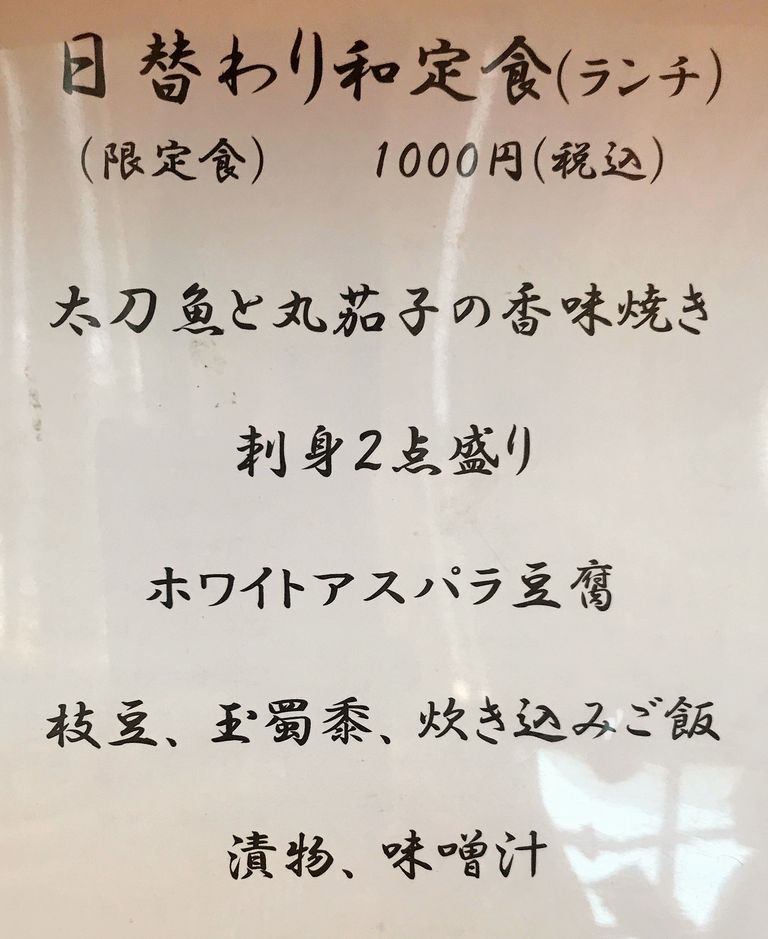 日替わり和定食(ランチ)
(限定食) 1000円(税込)
太刀魚と丸茄子の香味焼き
刺身2点盛り
ホワイトアスパラ豆腐
枝豆、玉蜀黍、炊き込みご飯
漬物、味噌汁